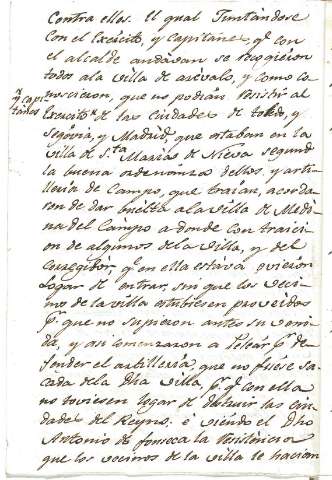 contra ellos. El qual Juntándose
con el Exército, y Capitanes, q.e con
el alcalde andavan se recogieron
todos ala villa de arévalo, y como co
noscieron, que no podían resistir al
y capi
tanes
Exercito de las ciudades de toledo, y
segovia, y Madrid, que estaban en la
villa de S.ta Maria de Nieva segund
la buena ordenanza dellos. y arti-
llería de Campo, que traían, acorda-
ron de dar buelta a la villa de Medi-
na del Campo a donde con traici
on de algunos de la villa, y del
corregidor, q.e en ella estava ovieron
Logar de entrar, sin que los veci
nos de la villa estubiesen proveidos
p.r que no supieron antes su veni
da, y asi comenzaron a Pelear p.r de
fender el artillería, que no fuése sa
cada dela dha villa, p.r q.e con ella
no toviesen logar de destruir las ciu
dades del Reyno. é viéndo el dho
Antonio de fonseca la resistencia
que los vecinos de la villa le hacian